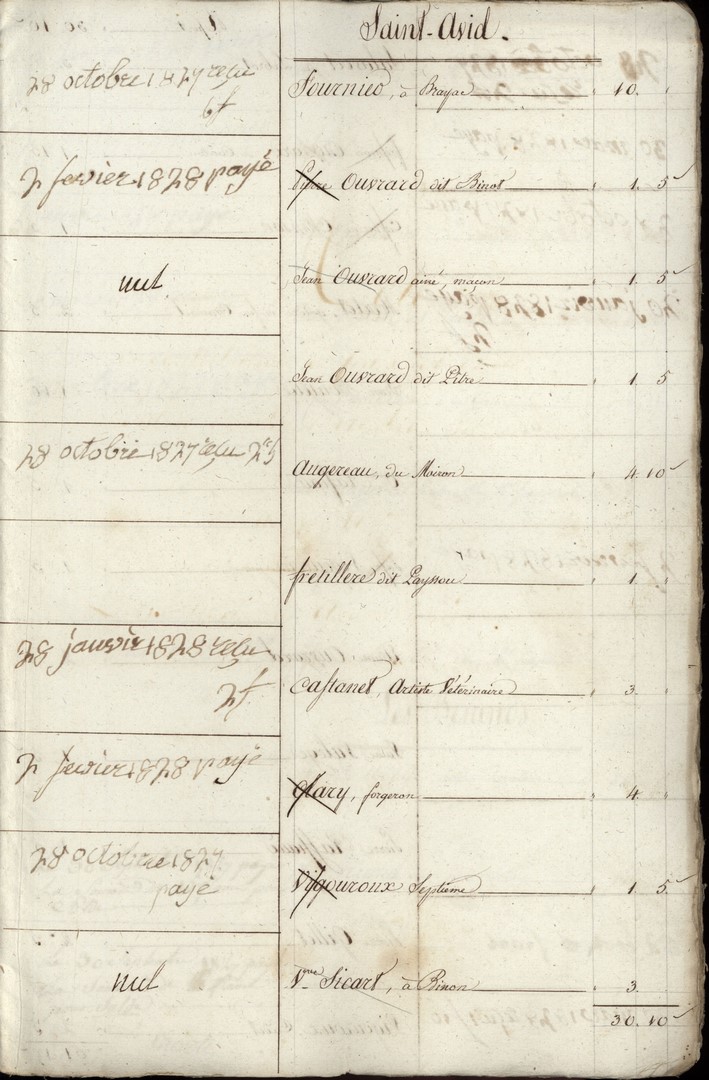 Saint-Avid.
28 octobre 1827 reçu
6f
Fournier, à Brayac 10.
2 fevrier 1828 payé
Pitre Ouvrard dit Binot 1. 5
nul
Jean Ouvrard ainé, maçon 1. 5
Jean Ouvrard dit Pitre 1. 5
28 octobre 1827 reçu
Augereau, du Moiron 4. 10
fretillere dit Layssou 1.
28 janvir 1828 reçu
2f
Castanet, Artiste Vétérinaire 3.
2 fevrier 1828 payé
Glary, forgeron 4.
28 octobre 1827
payé
Vigouroux Septime 1. 5
nul
Vve Sicart, à Binon 3.
30. 10